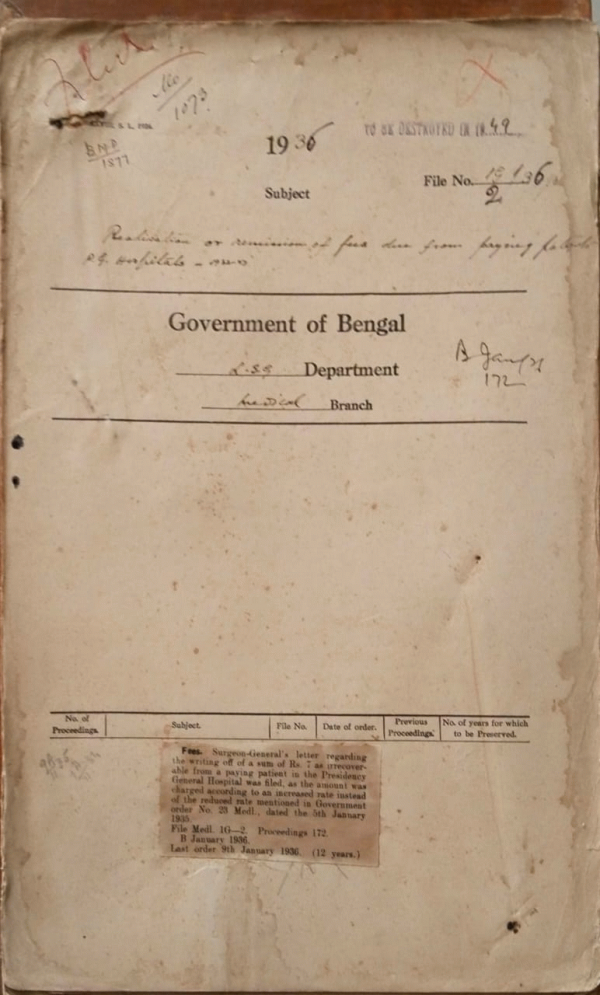 No
1073
1936
TO BE DESTROYED IN 1949
1877
File No.
2
Subject
Realisation or remission of fees due from paying
P.G. Hospitals
Government of Bengal
L.S.G Department
Medical Branch
B Jany
172
No. of Proceedings. Subject. File No. Date of order. Previous Proceedings. No. of years for which to be Preserved.
Fees. Surgeon-General's letter regarding
the writing off of a sum of Rs. 7 as irrecover-
able from a paying patient in the Presidency
General Hospital was filed, as the amount was
charged according to an increased rate instead
of the reduced rate mentioned in Government
order No. 23 Medl., dated the 5th January
1935.
File Medl. 1G—2. Proceedings 172.
B January 1936.
Last order 9th January 1936. (12 years.)